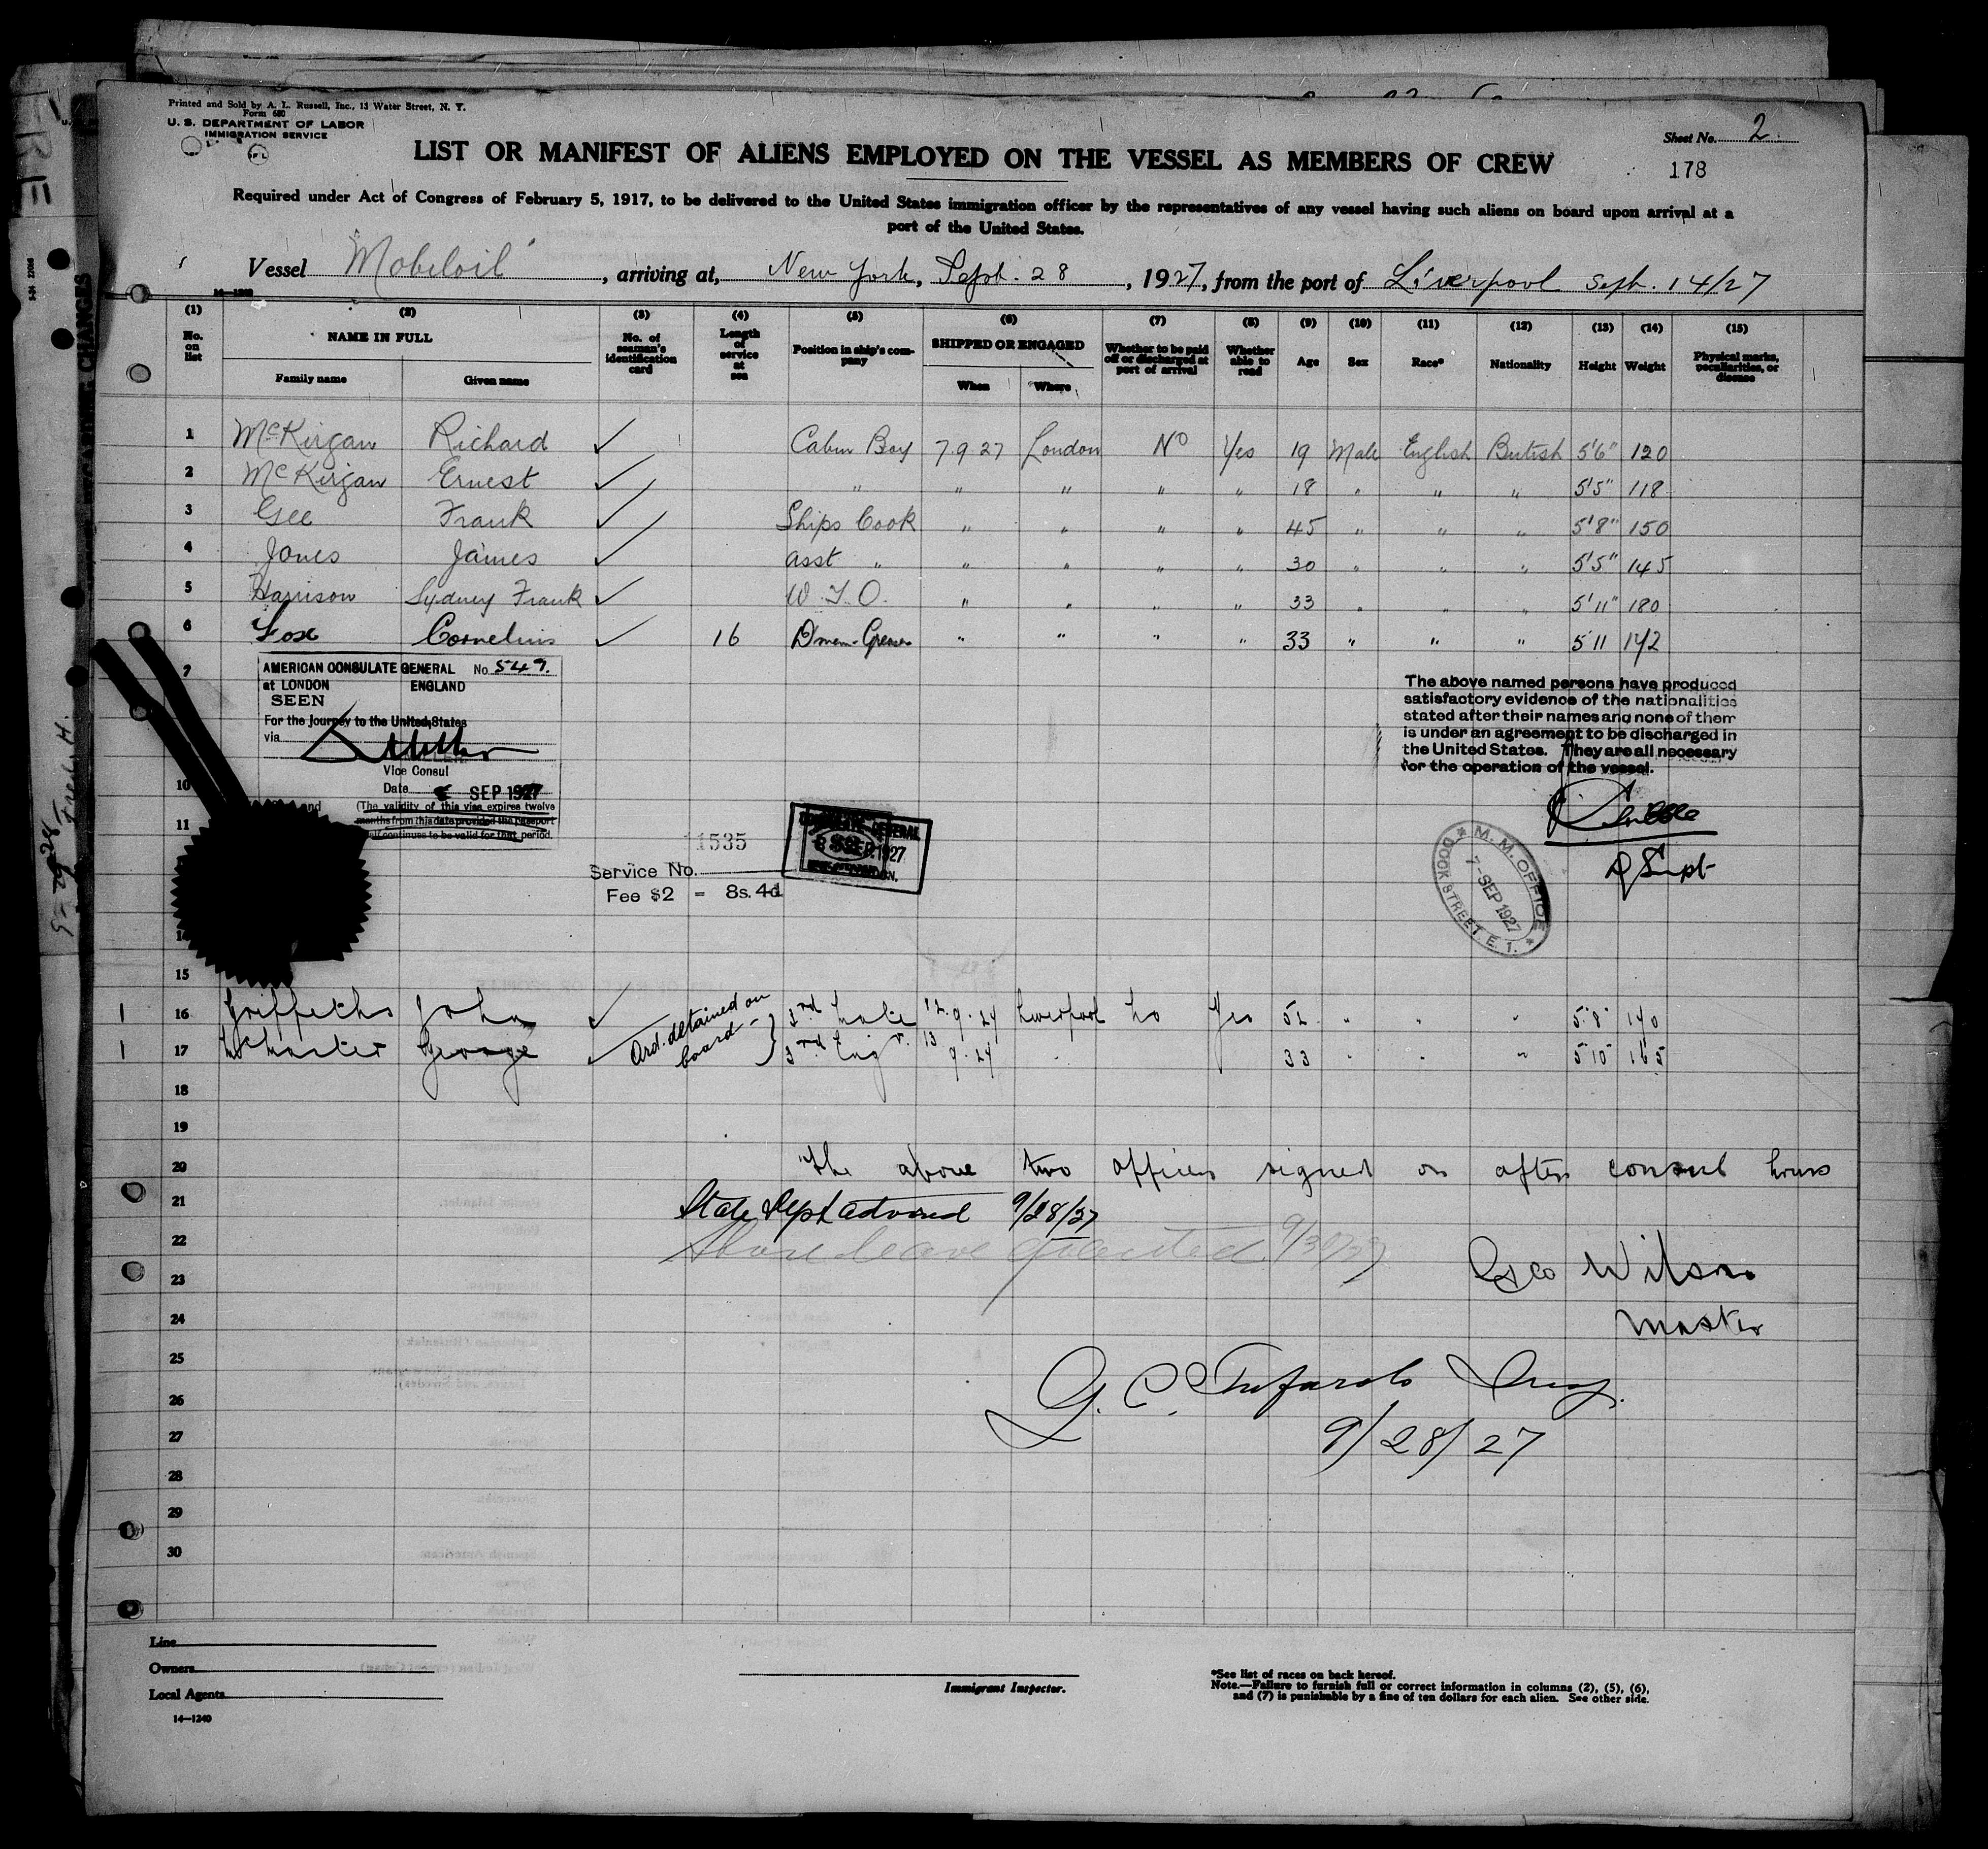 Printed and Sold by A. L. Russell, Inc., 13 Water Street, N. Y.
Form 680
U. S. DEPARTMENT OF LABOR
IMMIGRATION SERVICE
Sheet No. 2
LIST OR MANIFEST OF ALIENS EMPLOYED ON THE VESSEL AS MEMBERS OF CREW
178
Required under Act of Congress of February 5, 1917, to be delivered to the United States immigration officer by the representatives of any vessel having such aliens on board upon arrival at a
port of the United States.
Vessel Mobiloil, arriving at, New York, Sept. 28, 1927, from the port of Liverpool Sept. 14/27
14—1240
(1) (2) (3) (4) (5) (6) (7) (8) (9) (10) (11) (12) (13) (14) (15)
No. on list NAME IN FULL Family name Given name No. of seaman's identification card Length of service at sea Position in ship's company SHIPPED OR ENGAGED When Where Whether to be paid off or discharged at port of arrival Whether able to read Age Sex Race* Nationality Height Weight Physical marks, peculiarities, or disease
1 McKirgan Richard ✓ Cabin Boy 7 9 27 London No Yes 19 Male English British 5'6" 120
2 McKirgan Ernest ✓ " " " " " 18 " " " 5'5" 118
3 Gee Frank ✓ Ships Cook " " " " 45 " " " 5'8" 150
4 Jones James ✓ asst " " " " " 30 " " " 5'5" 145
5 Harrison Sydney Frank ✓ W.T.O. " " " " 33 " " " 5'11" 180
6 Fox Cornelius ✓ 16 " " " " 33 " " " 5 11 142
7
AMERICAN CONSULATE GENERAL No. 549.
at LONDON ENGLAND
SEEN
For the journey to the United States
via
Vice Consul
Date SEP 1927
(The validity of this visa expires twelve
months from this date provided the passport
continues to be valid for that period.
The above named persons have produced
satisfactory evidence of the nationalities
stated after their names and none of them
is under an agreement to be discharged in
the United States. They are all necessary
for the operation of the vessel.
D Supt
10
11
11535
Service No.
Fee $2 = 8s. 4d
SEP 1927
M. M. OFFICE
7 - SEP 1927
DOCK STREET. E. 1.
15
1 16 Griffiths John ✓ 3rd Mate 12.9.27 Liverpool No Yes 52 " " " 5'8" 140
1 17 George ✓ 3rd Engr. 13 9.27 " 33 " " " 5'10" 165
Ord. detained on
board -
18
19
20 The above two officers signed on after consul hours
21 State Dept advised 9/28/27
22 Shore leave granted
23 Wilson
24 Master
25
26
27 9/28/27
28
29
30
Line
Owners
Local Agents
14—1240
Immigrant Inspector.
*See list of races on back hereof.
Note.—Failure to furnish full or correct information in columns (2), (5), (6),
and (7) is punishable by a fine of ten dollars for each alien. See other side.